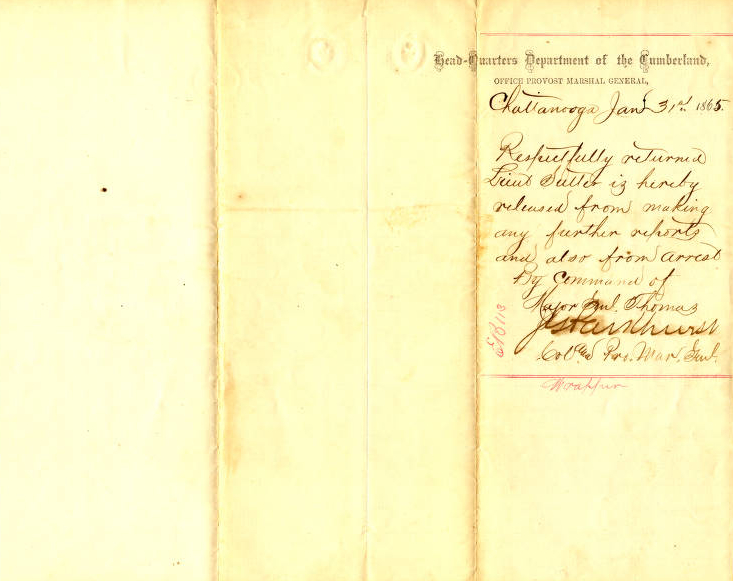 Head-Quarters Department of the Cumberland,
OFFICE PROVOST MARSHAL GENERAL,
Chattanooga Jany 31st 1865.
Respectfully returned
Lieut Sutter is hereby
released from making
any further reports
and also from arrest
By Command of
Major Genl. Thomas
JG Parkhurst
Col and Pro. Mar. Genl.